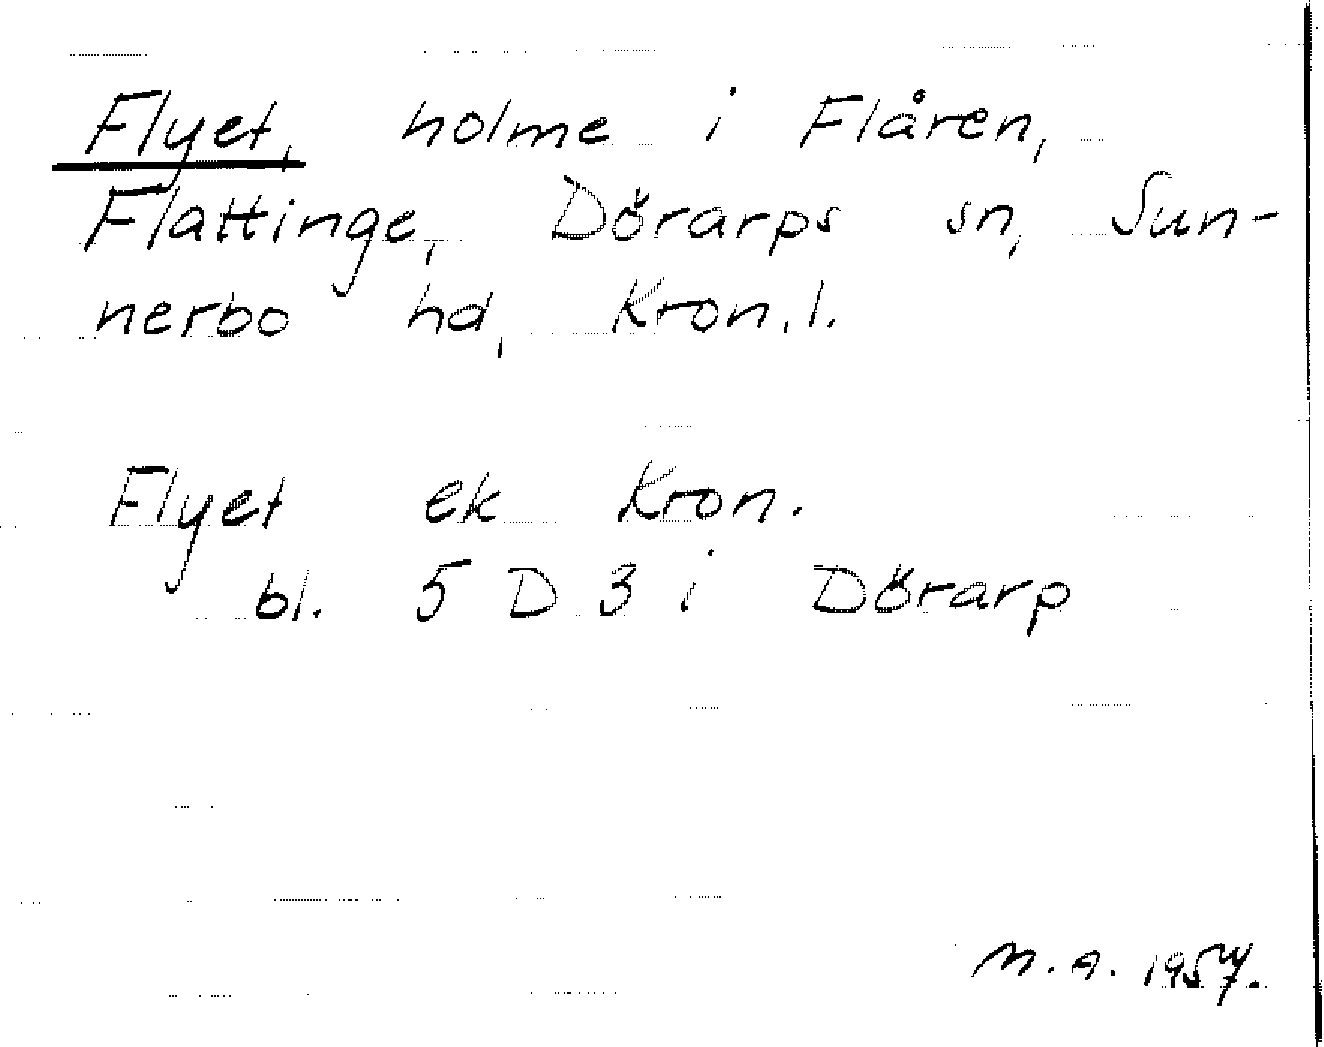 Flyet, holme i Flåren,
Flattinge, Dörarps sn, Sun-
nerbo hd, Kron. l.
Flyet ek Kron.
bl. 5 D 3 i Dörarp
M. A. 1957.